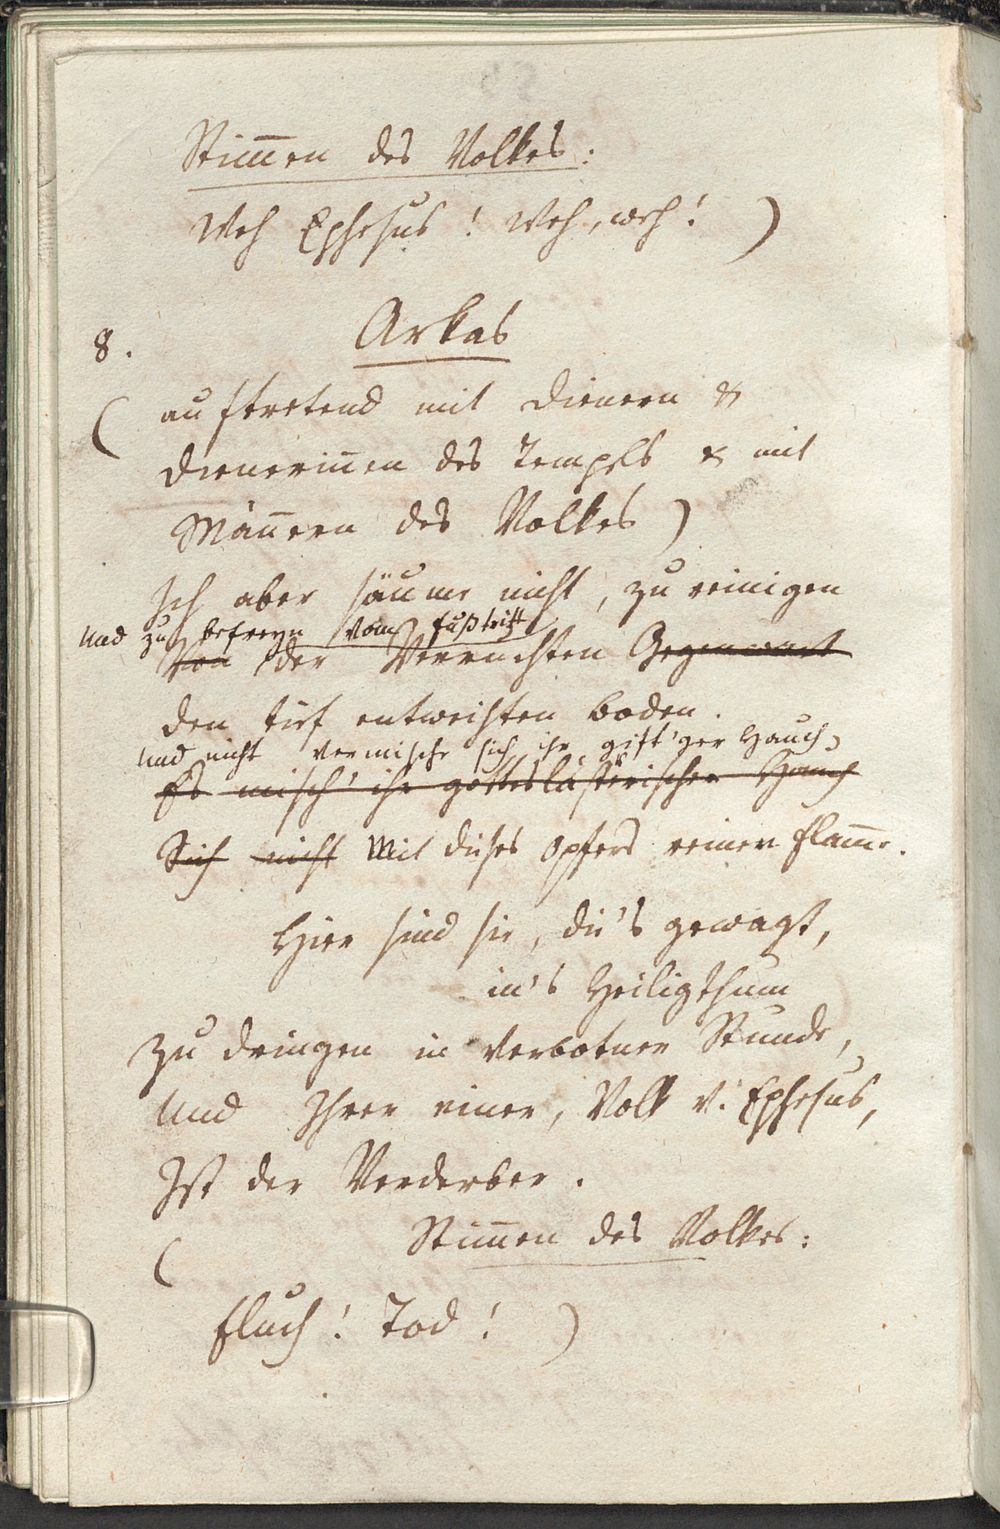 Stim̅en des Volkes:
Weh Ephesus! Weh, weh! )
8. Arkas
( auftretend mit Dienern &
Dienerin̅en des Tempels & mit
Män̅ern des Volkes )
Ich aber säume nicht, zu reinigen
Und zu befreyn vom Fußtritt
Von der Verruchten Gegenwart
Den tief entweihten Boden.
Und nicht vermische sich ihr gift'ger Hauch
Es misch' ihr gotteslästerischer Hauch
Sich nicht Mit dieses Opfers reiner Flam̅e.
Hier sind sie, die's gewagt,
in's Heiligthum
Zu dringen in verbotner Stunde,
Und Ihrer einer, Volk v. Ephesus,
Ist der Verderber.
( Stim̅en des Volkes:
Fluch! Tod! )